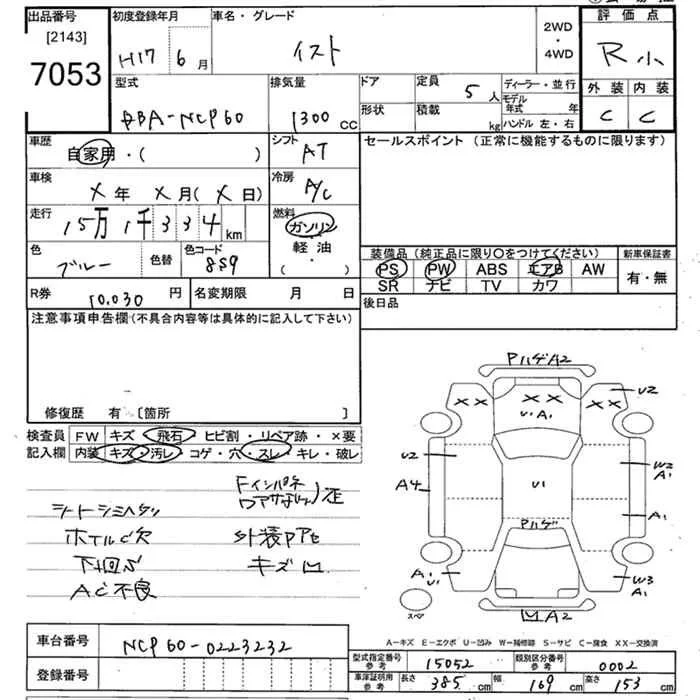 出品番号 初度登録年月 車名・グレード 2WD・4WD 評価点
[2143]
7053
H17 6月 イスト R小
型式 排気量 ドア 定員 ディーラー・並行 外装 内装
DBA-NCP60 1300cc 5人 モデル年式 年 C C
形状 積載 kg ハンドル 左・右
車歴 シフト セールスポイント (正常に機能するものに限ります)
自家用・( ) AT
車検 冷房
X年 X月(X日) A/C
走行 燃料
15万1千334km ガソリン
軽油
( ・ )
色 色替 色コード 装備品(純正品に限り○をつけてください) 新車保証書
ブルー 859 PS PW ABS エアB AW 有・無
SR ナビ TV カワ
R券 10,030円 名変期限 月 日 後日品
注意事項申告欄(不具合内容等は具体的に記入して下さい)
修復歴 有 [箇所 ]
検査員記入欄 FW キズ・飛石・ヒビ割・リペア跡・×要
内装 キズ・汚レ・コゲ・穴・スレ・キレ・破レ
シートシミヘタリ
ホイルC欠 外装Pアセ
下廻サビ キズ凹
AC不良
PハゲA2
XX XX XX U2
U・A1
U2 W2
A1
A4 U1
Pハゲ A1
A1 W3
U1 A1
スペア 凹A2
A-キズ E-エクボ U-凹み W-補修跡 S-サビ C-腐食 XX-交換済
車台番号 NCP60-0223232
登録番号
型式指定番号 参考 15052 類別区分番号 参考 0002
車庫証明用 参考 長さ 385cm 幅 169cm 高さ 153cm